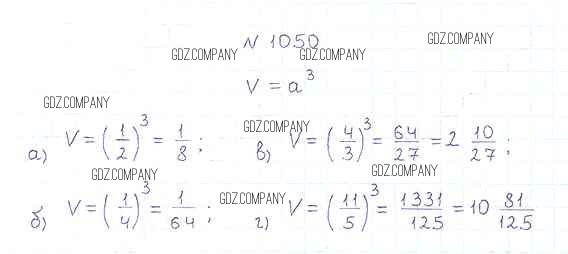 N 1050
GDZ.COMPANY GDZ.COMPANY GDZ.COMPANY
V = a³
GDZ.COMPANY
а) V = (1/2)³ = 1/8 ; GDZ.COMPANY в) V = (4/3)³ = 64/27 = 2 10/27 ;
GDZ.COMPANY GDZ.COMPANY
б) V = (1/4)³ = 1/64 ; GDZ.COMPANY г) V = (11/5)³ = 1331/125 = 10 81/125